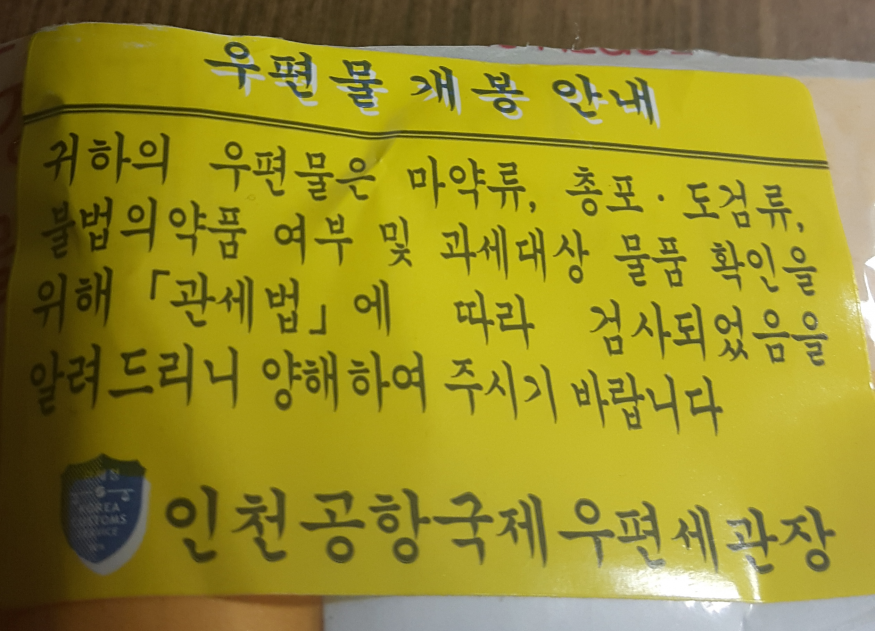 우편물 개봉 안내
귀하의 우편물은 마약류, 총포·도검류,
불법의약품 여부 및 과세대상 물품 확인을
위해 「관세법」에 따라 검사되었음을
알려드리니 양해하여 주시기 바랍니다
관세청
KOREA
CUSTOMS
SERVICE
인천공항국제우편세관장